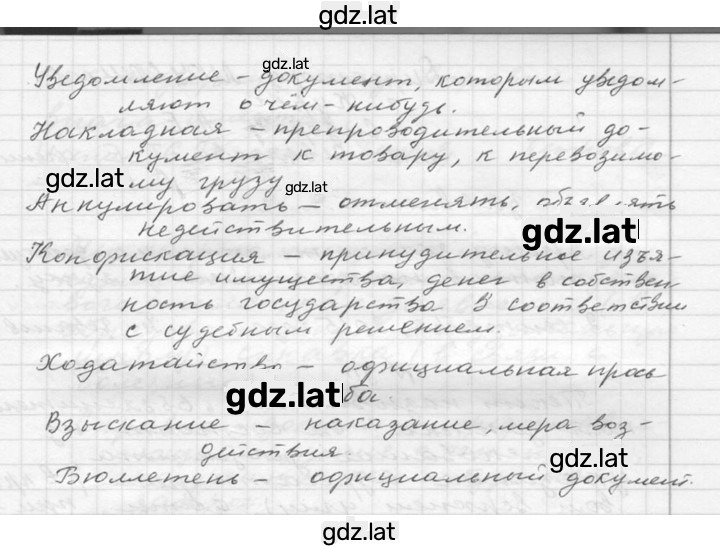 gdz.lat
gdz.lat
Уведомление – документ, которым уведом-
ляют о чём-нибудь.
Накладная – препроводительный до-
кумент к товару, к перевозимо-
gdz.lat
му грузу
gdz.lat
Аннулировать – отменять, объявлять
недействительным.
gdz.lat
Конфискация – принудительное изъя-
тие имущества, денег в собствен
ность государства в соответствии
с судебным решением.
Ходатайство – официальная прось
gdz.lat
ба
Взыскание – наказание, мера воз-
действия
gdz.lat
Бюллетень – официальный документ.
gdz.lat